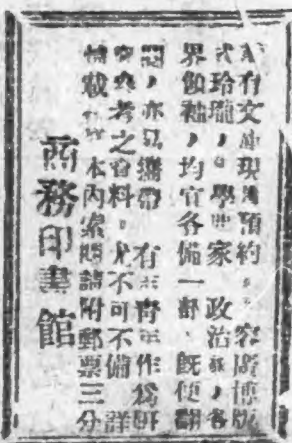 有文庫現預約，容廣博版
式玲瓏，學家 政治家，各
界領袖，均宜各備一部、既便翻
閱，亦易攜帶 有志青年作為研
究參考之資料。尤不可不備 詳
情載本內索閱請附郵票三分
商務印書館